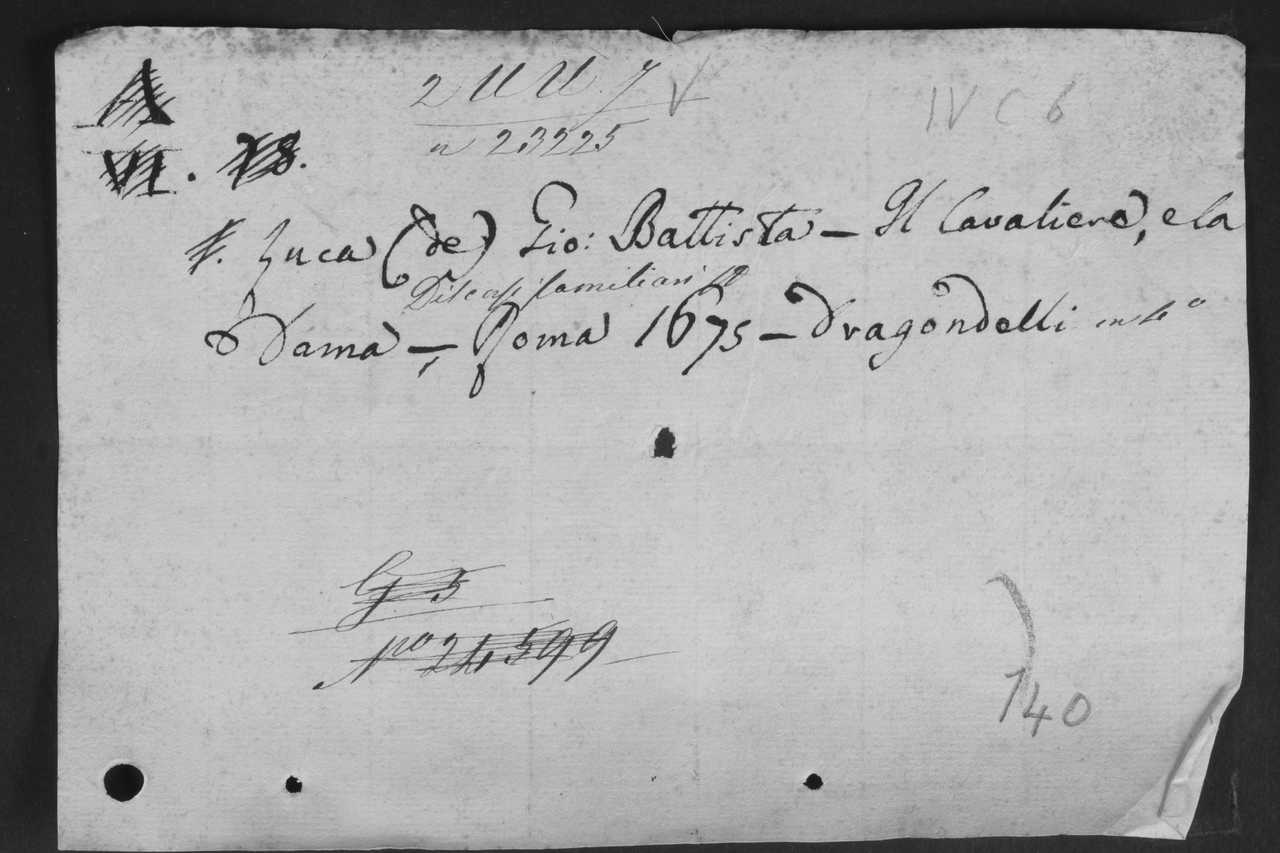 A
2 U U 7 V
IV C 6
n 23225
VI. 28.
F. Luca (de) Gio: Battista — Il Cavaliere, e la
Discorsi familiari
Dama — Roma 1675 — Dragondelli in 4°
G 5
No 24599
140